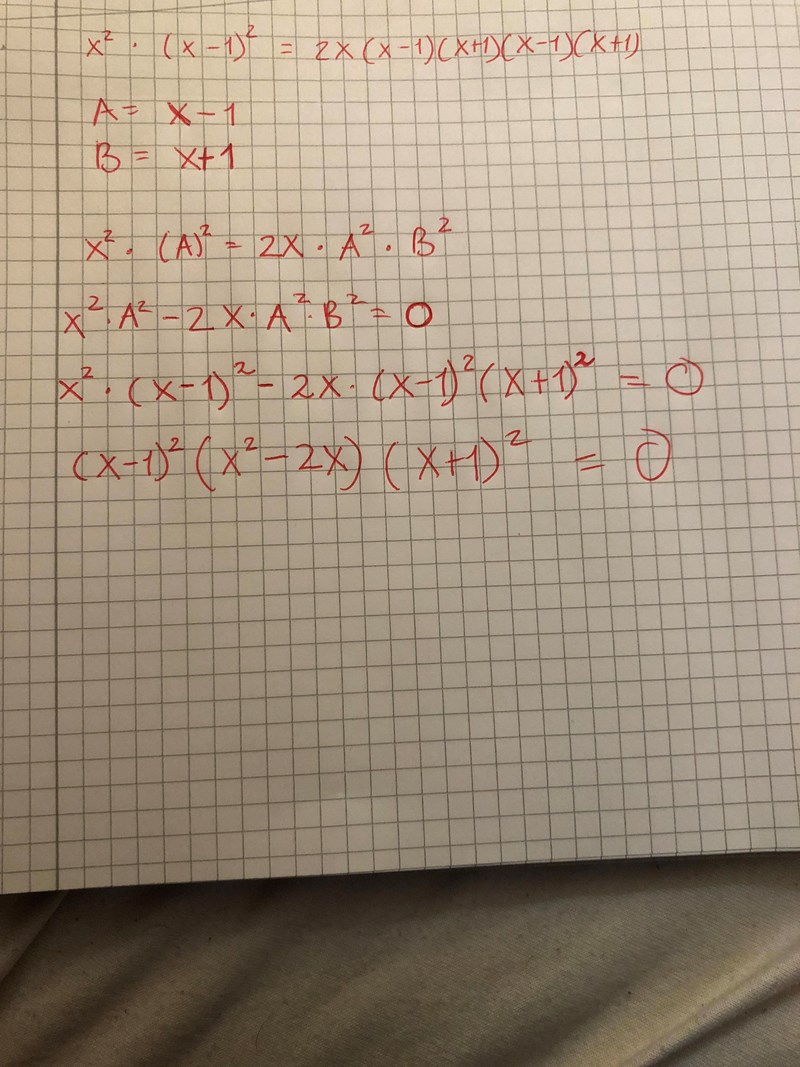 x² · (x-1)² = 2x(x-1)(x+1)(x-1)(x+1)
A = x-1
B = x+1
x² · (A)² = 2x · A² · B²
x² · A² - 2x · A² · B² = 0
x² · (x-1)² - 2x · (x-1)² (x+1)² = 0
(x-1)² (x² - 2x) (x+1)² = 0